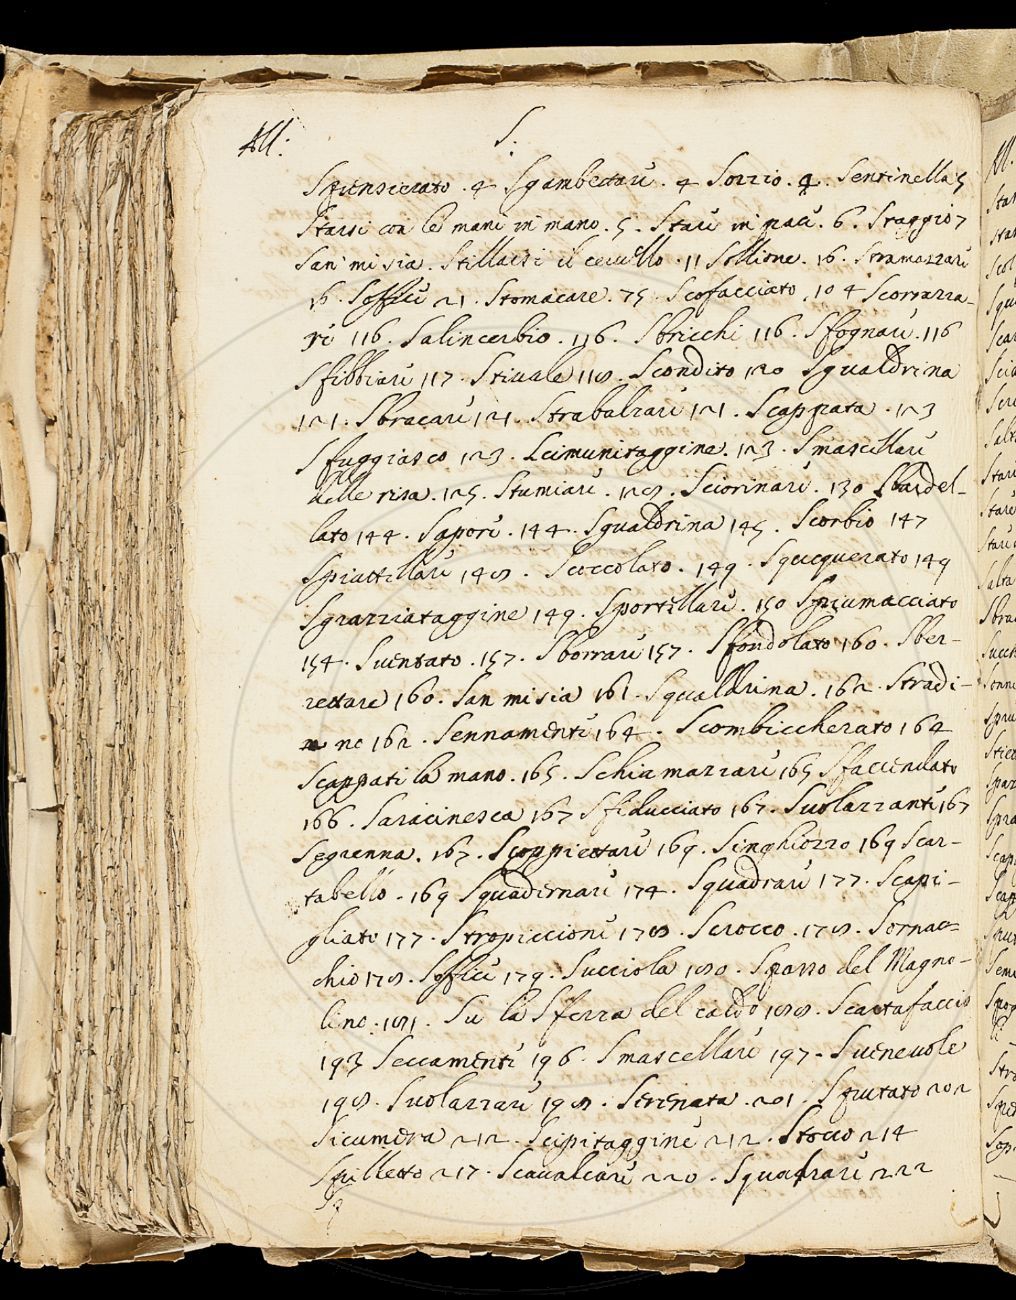 All: S.
Spensierato. 4 Sgambettare. 4 Sozzio. 4. Sentinella 5
Starsi con le mani in mano. 5. Stare in pace. 6. Staggio 7
San' mi sia. Stillarsi il cervello. 11 Sollione. 16. Stramazzare
16. Soffice 21. Stomacare. 75. Scofacciato. 104 Scorrazza-
re 116. Salincerbio. 116. Sbricchi 116. Sfognare. 116
Sfibbiare 117. Stivale 118. Scondito 120 Squaldrina
121. Sbracare 121. Strabalzare 121. Scappata. 123
Sfuggiasco 123. Scimunitaggine. 123. Smascellare
delle risa. 125. Stumiare. 128. Sciorinare. 130 Sbardel-
lato 144. Sapore. 144. Squaldrina 145. Scorbio 147
Spiattellare 148. Scoccolato. 149. Squcquerato 149
Sgraziataggine 149. Sportellare. 150 Spiumacciato
154. Sventato. 157. Sborrare 157. Sfondolato 160. Sber-
rettare 160. San mi sia 161. Squaldrina. 162. Stradi-
no 162. Sennamente 164. Scombiccherato 164
Scappati la mano. 165. Schiamazzare 165 Sfaccendato
166. Saracinesca 167 Sfiducciato 167. Svolazzante 167
Segrenna. 167. Scoppiettare 169. Singhiozzo 169 Scar-
tabello. 169 Squadernare 174. Squadrare 177. Scapi-
gliato 177. Stropiccione 178. Scrocco. 178. Sornac-
chio 178. Soffice 179. Succiola 180. Spasso del Magno-
lino. 181. Su la Sferra del caldo 188. Scartafaccio
193 Seccamente 196. Smascellare 197. Svenevole
198. Svolazzare 198. Serenata. 201. Sfrutato 202
Sicumera 212. Scipitaggine 212. Stocco 214
Spilletto 217. Scavalcare 220. Squadrare 222